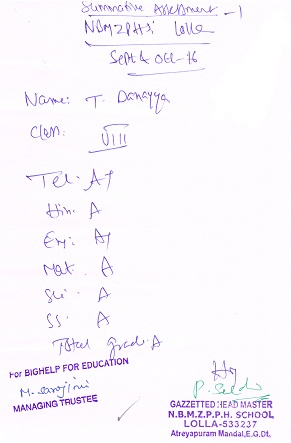 Summative Assessment - 1
NBMZPHS Lolla
Sept & Oct-16
Name: T. Danayya
Class: VIII
Tel: A1
Hin: A
Eng: A1
Mat: A
Sci: A
SS: A
Total grad: A
For BIGHELP FOR EDUCATION
M. Sarojini
MANAGING TRUSTEE
GAZZETTED HEAD MASTER
N.B.M.Z.P.P.H. SCHOOL
LOLLA-533237
Atreyapuram Mandal, E.G.Dt.